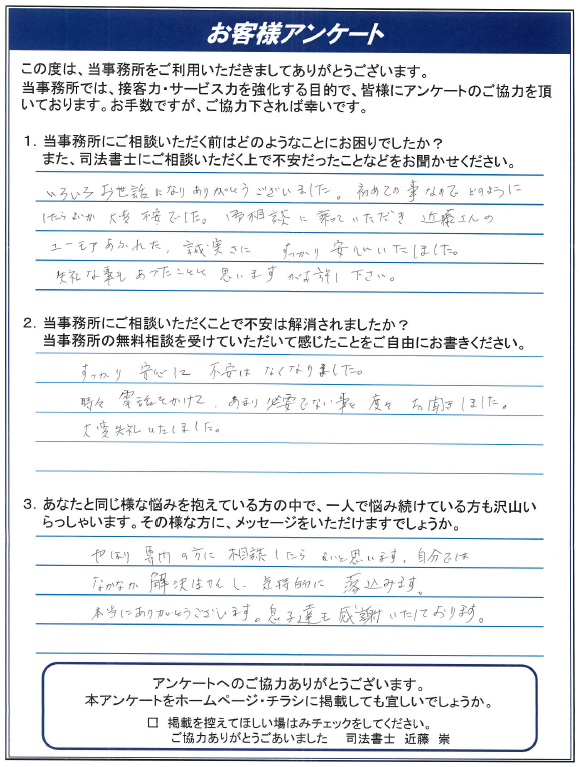 お客様アンケート
この度は、当事務所をご利用いただきましてありがとうございます。
当事務所では、接客力・サービス力を強化する目的で、皆様にアンケートのご協力を頂
いております。お手数ですが、ご協力下されば幸いです。
1．当事務所にご相談いただく前はどのようなことにお困りでしたか？
また、司法書士にご相談いただく上で不安だったことなどをお聞かせください。
いろいろお世話になりありがとうございました。初めての事なのでどのように
したらよいか 大変 不安でした。御相談に乗っていただき 近藤さんの
ユーモアあふれた、誠実さに すっかり 安心いたしました。
失礼な事もあったことと思いますがお許し下さい。
2．当事務所にご相談いただくことで不安は解消されましたか？
当事務所の無料相談を受けていただいて感じたことをご自由にお書きください。
すっかり 安心して 不安は なくなりました。
時々 電話をかけて、あまり必要でない事を 度々 お聞きしました。
大変失礼いたしました。
3．あなたと同じ様な悩みを抱えている方の中で、一人で悩み続けている方も沢山い
らっしゃいます。その様な方に、メッセージをいただけますでしょうか。
やはり 専門の方に 相談したら よいと思います。自分では
なかなか 解決しませんし、気持的に 落込みます。
本当にありがとうございます。息子達も感謝いたしております。
アンケートへのご協力ありがとうございます。
本アンケートをホームページ・チラシに掲載しても宜しいでしょうか。
□ 掲載を控えてほしい場はみチェックをしてください。
ご協力ありがとうごあいました 司法書士 近藤 崇